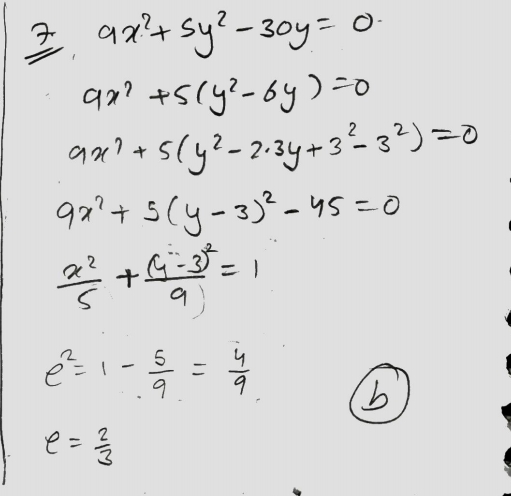 7. 9x² + 5y² - 30y = 0
9x² + 5(y² - 6y) = 0
9x² + 5(y² - 2·3y + 3² - 3²) = 0
9x² + 5(y - 3)² - 45 = 0
x²/5 + (y - 3)²/9 = 1
e² = 1 - 5/9 = 4/9
b
e = 2/3